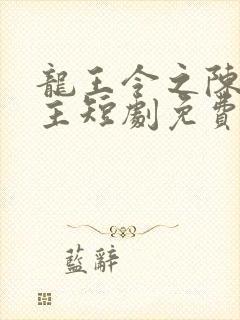 龍王令之陳
主短劇免費
藍辭